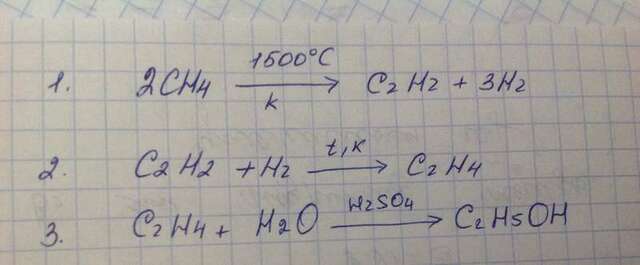 1. 2CH4 1500°C→k C2H2 + 3H2
2. C2H2 + H2 t,k→ C2H4
3. C2H4 + H2O H2SO4→ C2H5OH